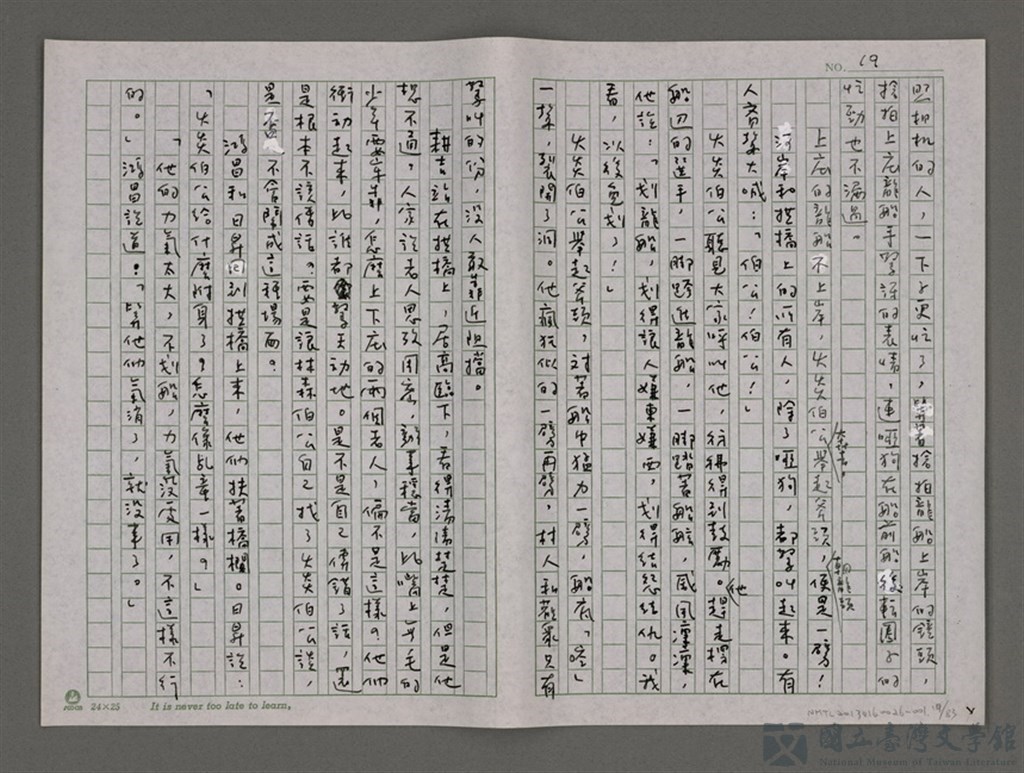 NO. 19
照相机的人，一下子更忙了，忙著搶拍龍船上岸的鏡頭，
搶拍上庄龍船手驚訝的表情，連啞狗在船前船後轉圈子的
忙勁也不漏過。
上庄的龍船不上岸，火炎伯公舉起斧頭，便是一劈！
奔去
朝龍頭
河岸和拱橋上的所有人，除了啞狗，都驚叫起來。有
人齊聲大喊：「伯公！伯公！」
火炎伯公聽見大家呼叫他，彷彿得到鼓勵。他趕走擋在
船邊的選手，一脚跨進龍船，一脚踏著船舷，威風凜凜，
他說：「划龍船，划得讓人嫌東嫌西，划得結怨結仇。我
看，以後免划了！」
火炎伯公舉起斧頭，對著船中猛力一劈，船底「喀」
一聲，裂開了洞。他瘋狂似的一劈再劈，村人和觀眾只有
驚叫的份，沒人敢靠近阻擋。
耕吉站在拱橋上，居高臨下，看得清清楚楚，但是他
想不通。人家說老人思攷周密，辦事穩當，比嘴上無毛的
少年要牢靠，怎麼上下庄的兩個老人，偏不是這樣？他們
衝動起來，比誰都驚天動地。是不是自己傳錯了話，還
是根本不該傳話？要是讓林森伯公自己找了火炎伯公談，
是否不會鬧成這種場面。
鴻昌和日昇回到拱橋上來，他們扶著橋欄。日昇說：
「火炎伯公給什麼附身了？怎麼像乩童一樣？」
「他的力氣太大，不划船，力氣沒處用，不這樣不行
的。」鴻昌說道：「等他們氣消了，就沒事了。」
24×25 It is never too late to learn.
NMTL20130160260-001 19/83
國立臺灣文學館
National Museum of Taiwan Literature